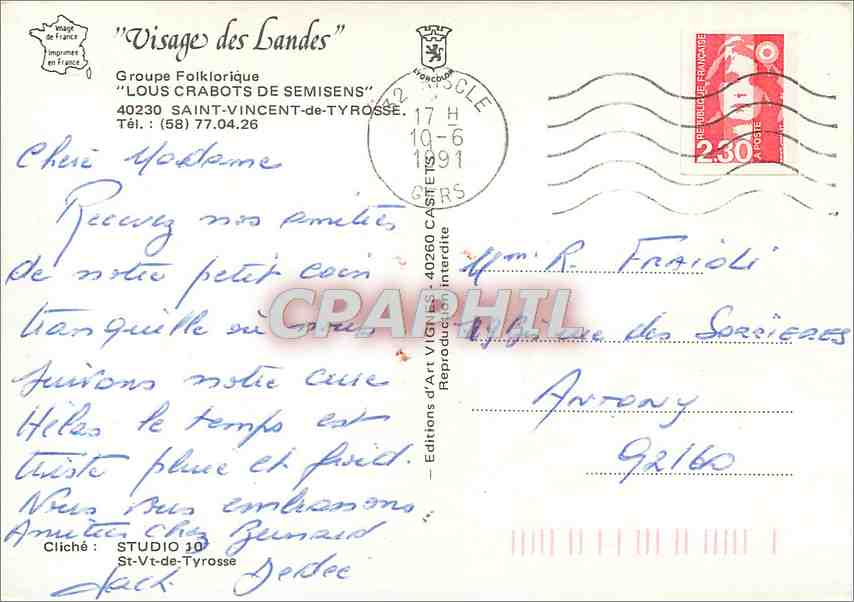 Image
de France
Imprimée
en France
"Visage des Landes"
Groupe Folklorique
"LOUS CRABOTS DE SEMISENS"
40230 SAINT-VINCENT-de-TYROSSE.
Tél. : (58) 77.04.26
LYONCOLOR
32 RISCLE
17 H
10-6
1991
GERS
REPUBLIQUE FRANÇAISE
2,30
LA POSTE
Chère Madame
Recevez nos amitiés
de notre petit coin
tranquille où nous
suivons notre cure
Hélas le temps est
triste pluie et froid.
Nous vous embrassons
Amitiés chez Bernard
Jack Dédée
Cliché : STUDIO 10
St-Vt-de-Tyrosse
— Editions d'Art VIGNES - 40260 CASTETS -
Reproduction interdite
Mme R. FRAIOLI
rue des SORRIERES
ANTONY
92160
CPARAMA